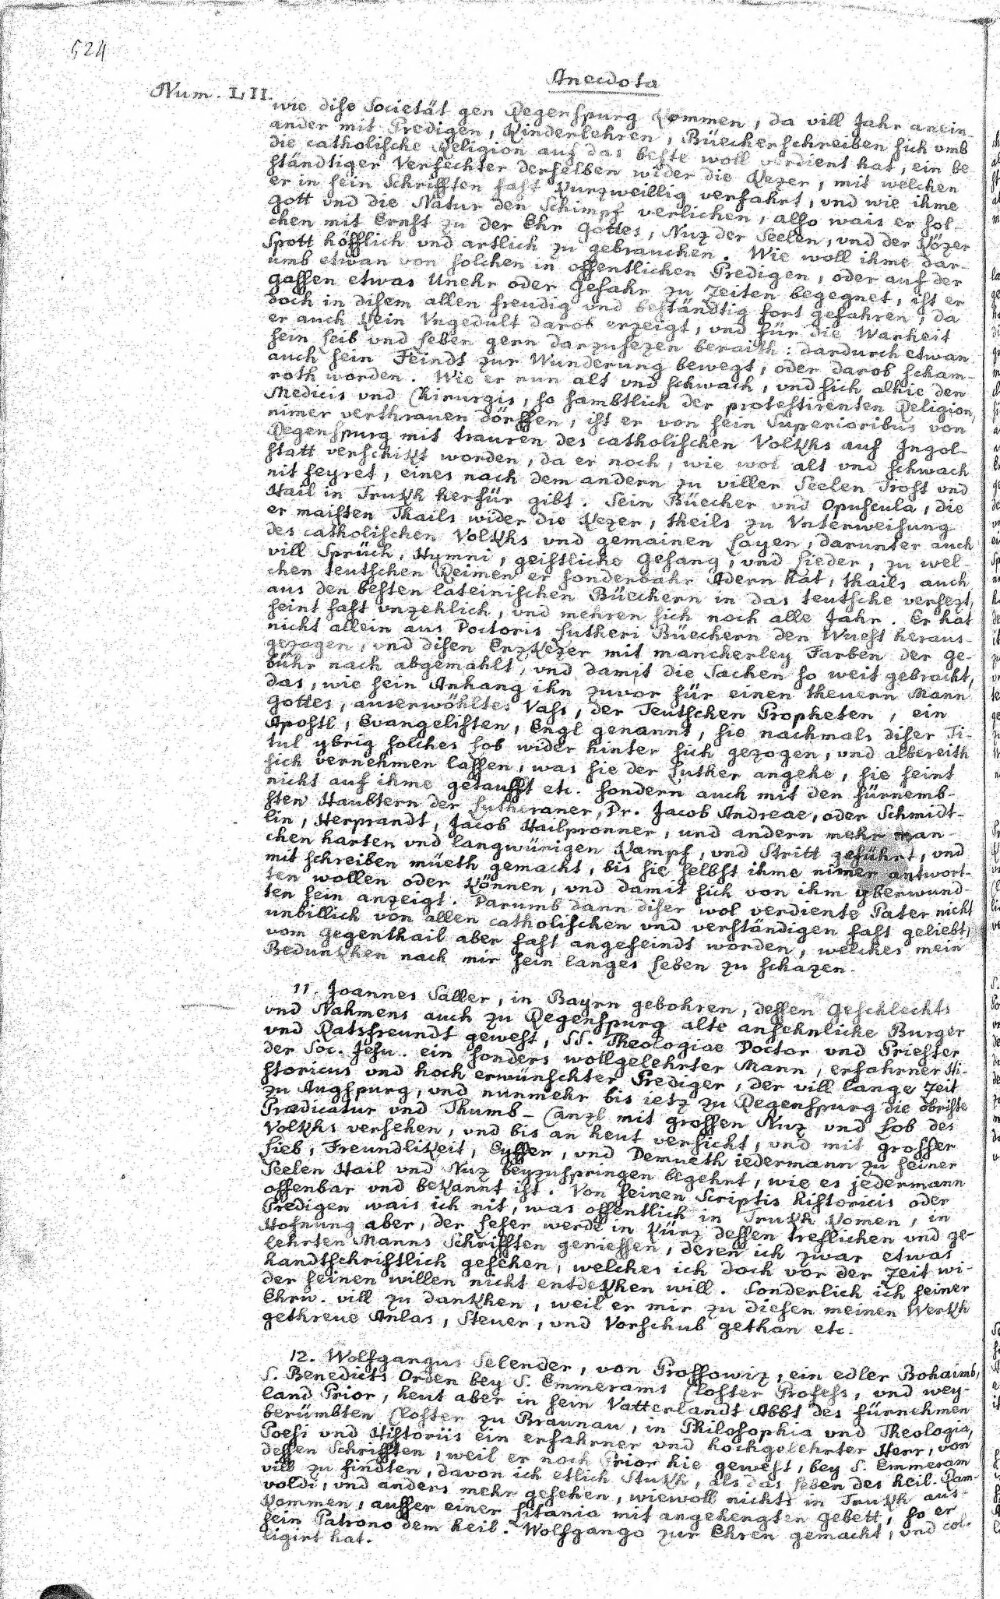 524
Anecdota
Num. LII.
wie dise Societät gen Regenspurg kommen, da vill Jahr anein-
ander mit Predigen, Kinderlehren, Büecherschreiben sich umb
die catholische Religion auf das beste woll verdient hat, ein be-
ständtiger Verfechter derselben wider die Kezer, mit welchen
er in sein Schrifften fast kurzweillig verfahrt, und wie ihme
Gott und die Natur den Schimpf verlichen, also wais er sol-
chen mit Ernst zu der Ehr Gottes, Nuz der Seelen, und derKözer
Spott höfflich und artlich zu gebrauchen. Wie woll ihme dar-
umb etwan von solchen in offentlichen Predigen, oder auf der
gassen etwas Unehr oder Gefahr zu Zeiten begegnet, ist er
doch in disem allen freudig und beständtig fort gefahren, da
er auch kein Ungedult darob erzeigt, und für die Warheit
sein Leib und Leben gern darzusezen beraith: dardurch etwan
auch sein Feindt zur Wunderung bewegt, oder darob scham-
roth worden. Wie er nun alt und schwach, und sich alhie den
Medicis und Chirurgis, so sambtlich der protestirenten Religion,
nimer verthrauen dörffen, ist er von sein Superioribus von
Regenspurg mit trauren des catholischen Volkhs auf Ingol-
statt verschikt worden, da er noch, wie wol alt und schwach
nit feyret, eines nach dem andern zu viller Seelen Trost und
Hail in Trukh herfür gibt. Sein Büecher und Opuscula, die
er maisten Thails wider die Kezer, theils zu Unterweisung
des catholischen Volkhs und gemainen Layen, darunter auch
vill Sprüch, Hymni, geistliche Gesang, und Lieder, zu wel-
chen teutschen Reimen er sonderbahr Adern hat, thails auch
aus den besten lateinischen Büechern in das teutsche versezt,
seint fast unzehlich, und mehren sich noch alle Jahr. Er hat
nicht allein aus Doctoris Lutheri Büechern den Wuest heraus-
gezogen, und disen Erzkezer mit mancherley Farben der ge-
bühr nach abgemahlt, und damit die Sachen so weit gebracht,
das, wie sein Anhang ihn zuvor für einen theuern Mann
Gottes, auserwöhltes Vass, der Teutschen Propheten, ein
Apostl, Evangelisten, Engl genannt, sie nachmals diser Ti-
tul ybrig solches Lob wider hinter sich gezogen, und albereith
sich vernehmen lassen, was sie der Luther angehe, sie seint
nicht auf ihme getaufft etc. sondern auch mit den fürnemb-
sten Haubtern der Lutheraner, Dr. Jacob Andreae, oder Schmidt-
lin, Herprandt, Jacob Hailpronner, und andern mehr man-
chen harten und langwürigen Kampf, und Stritt geführt, und
mit schreiben müeth gemacht, bis sie selbst ihme nimer antwort-
ten wollen oder können, und damit sich von ihm yberwund-
ten sein anzeigt. Darumb dann diser wol verdiente Pater nicht
unbillich von allen catholischen und verständigen fast geliebt,
vom Gegenthail aber fast angefeindt worden, welches mein
Bedunkhen nach mir sein langes Leben zu schazen.
11. Joannes Saller, in Bayrn gebohren, dessen Geschlechts
und Nahmens auch zu Regenspurg alte ansehnliche Burger
und Ratsfreundt gewest, SS. Theologiae Doctor und Priester
der Soc. Jesu. ein sonders wollgelehrter Mann, erfahrner Hi-
storicus und hoch erwünschter Prediger, der vill lange Zeit
zu Augspurg, und nunmehr bis ietz zu Regenspurg die öbriste
Praedicatur und Thumb-Canzl mit grossen Nuz und Lob des
Volkhs versehen, und bis an heut versicht, und mit grosser
Lieb, Freundlikeit, Eyffer, und Demueth iedermann zu seiner
Seelen Hail und Nuz beyzuspringen begehrt, wie es jedermann
offenbar und bekannt ist. Von seinen Scriptis historicis oder
Predigen wais ich nit, was offentlich in Trukh komen, in
Hofnung aber, der Leser werde in kürz dessen treflichen und ge-
lehrten Manns Schrifften geniessen, deren ich zwar etwas
handtschrifftlich gesehen, welches ich doch vor der Zeit wi-
der seinen willen nicht entdekhen will. Sonderlich ich seiner
Ehrw. vill zu dankhen, weil er mir zu diesen meinen Werkh
gethreue Anlas, Steuer, und Vorschub gethan etc.
12. Wolfgangus Selender, von Prossowiz, ein edler Bohaimb,
S. Benedicts Orden bey S. Emmerams Closter Profess, und wey-
land Prior, heut aber in sein Vatterlandt Abbt des fürnehmen
berümbten Closter zu Braunau, in Philosophia und Theologia,
Poesi und Historiis ein erfahrner und hochgelehrter Herr, von
dessen Schrifften, weil er noch Prior hie gewest, bey S. Emmeram
vill zu findten, davon ich etlich Stukh, als das Leben des heil. Ram-
voldi, und anders mehr gesehen, wiewoll nichts in Trukh aus-
kommen, ausser einer Litania mit angehengten gebett, so er
sein Patrono dem heil. Wolfgango zur Ehren gemacht, und col-
ligirt hat.